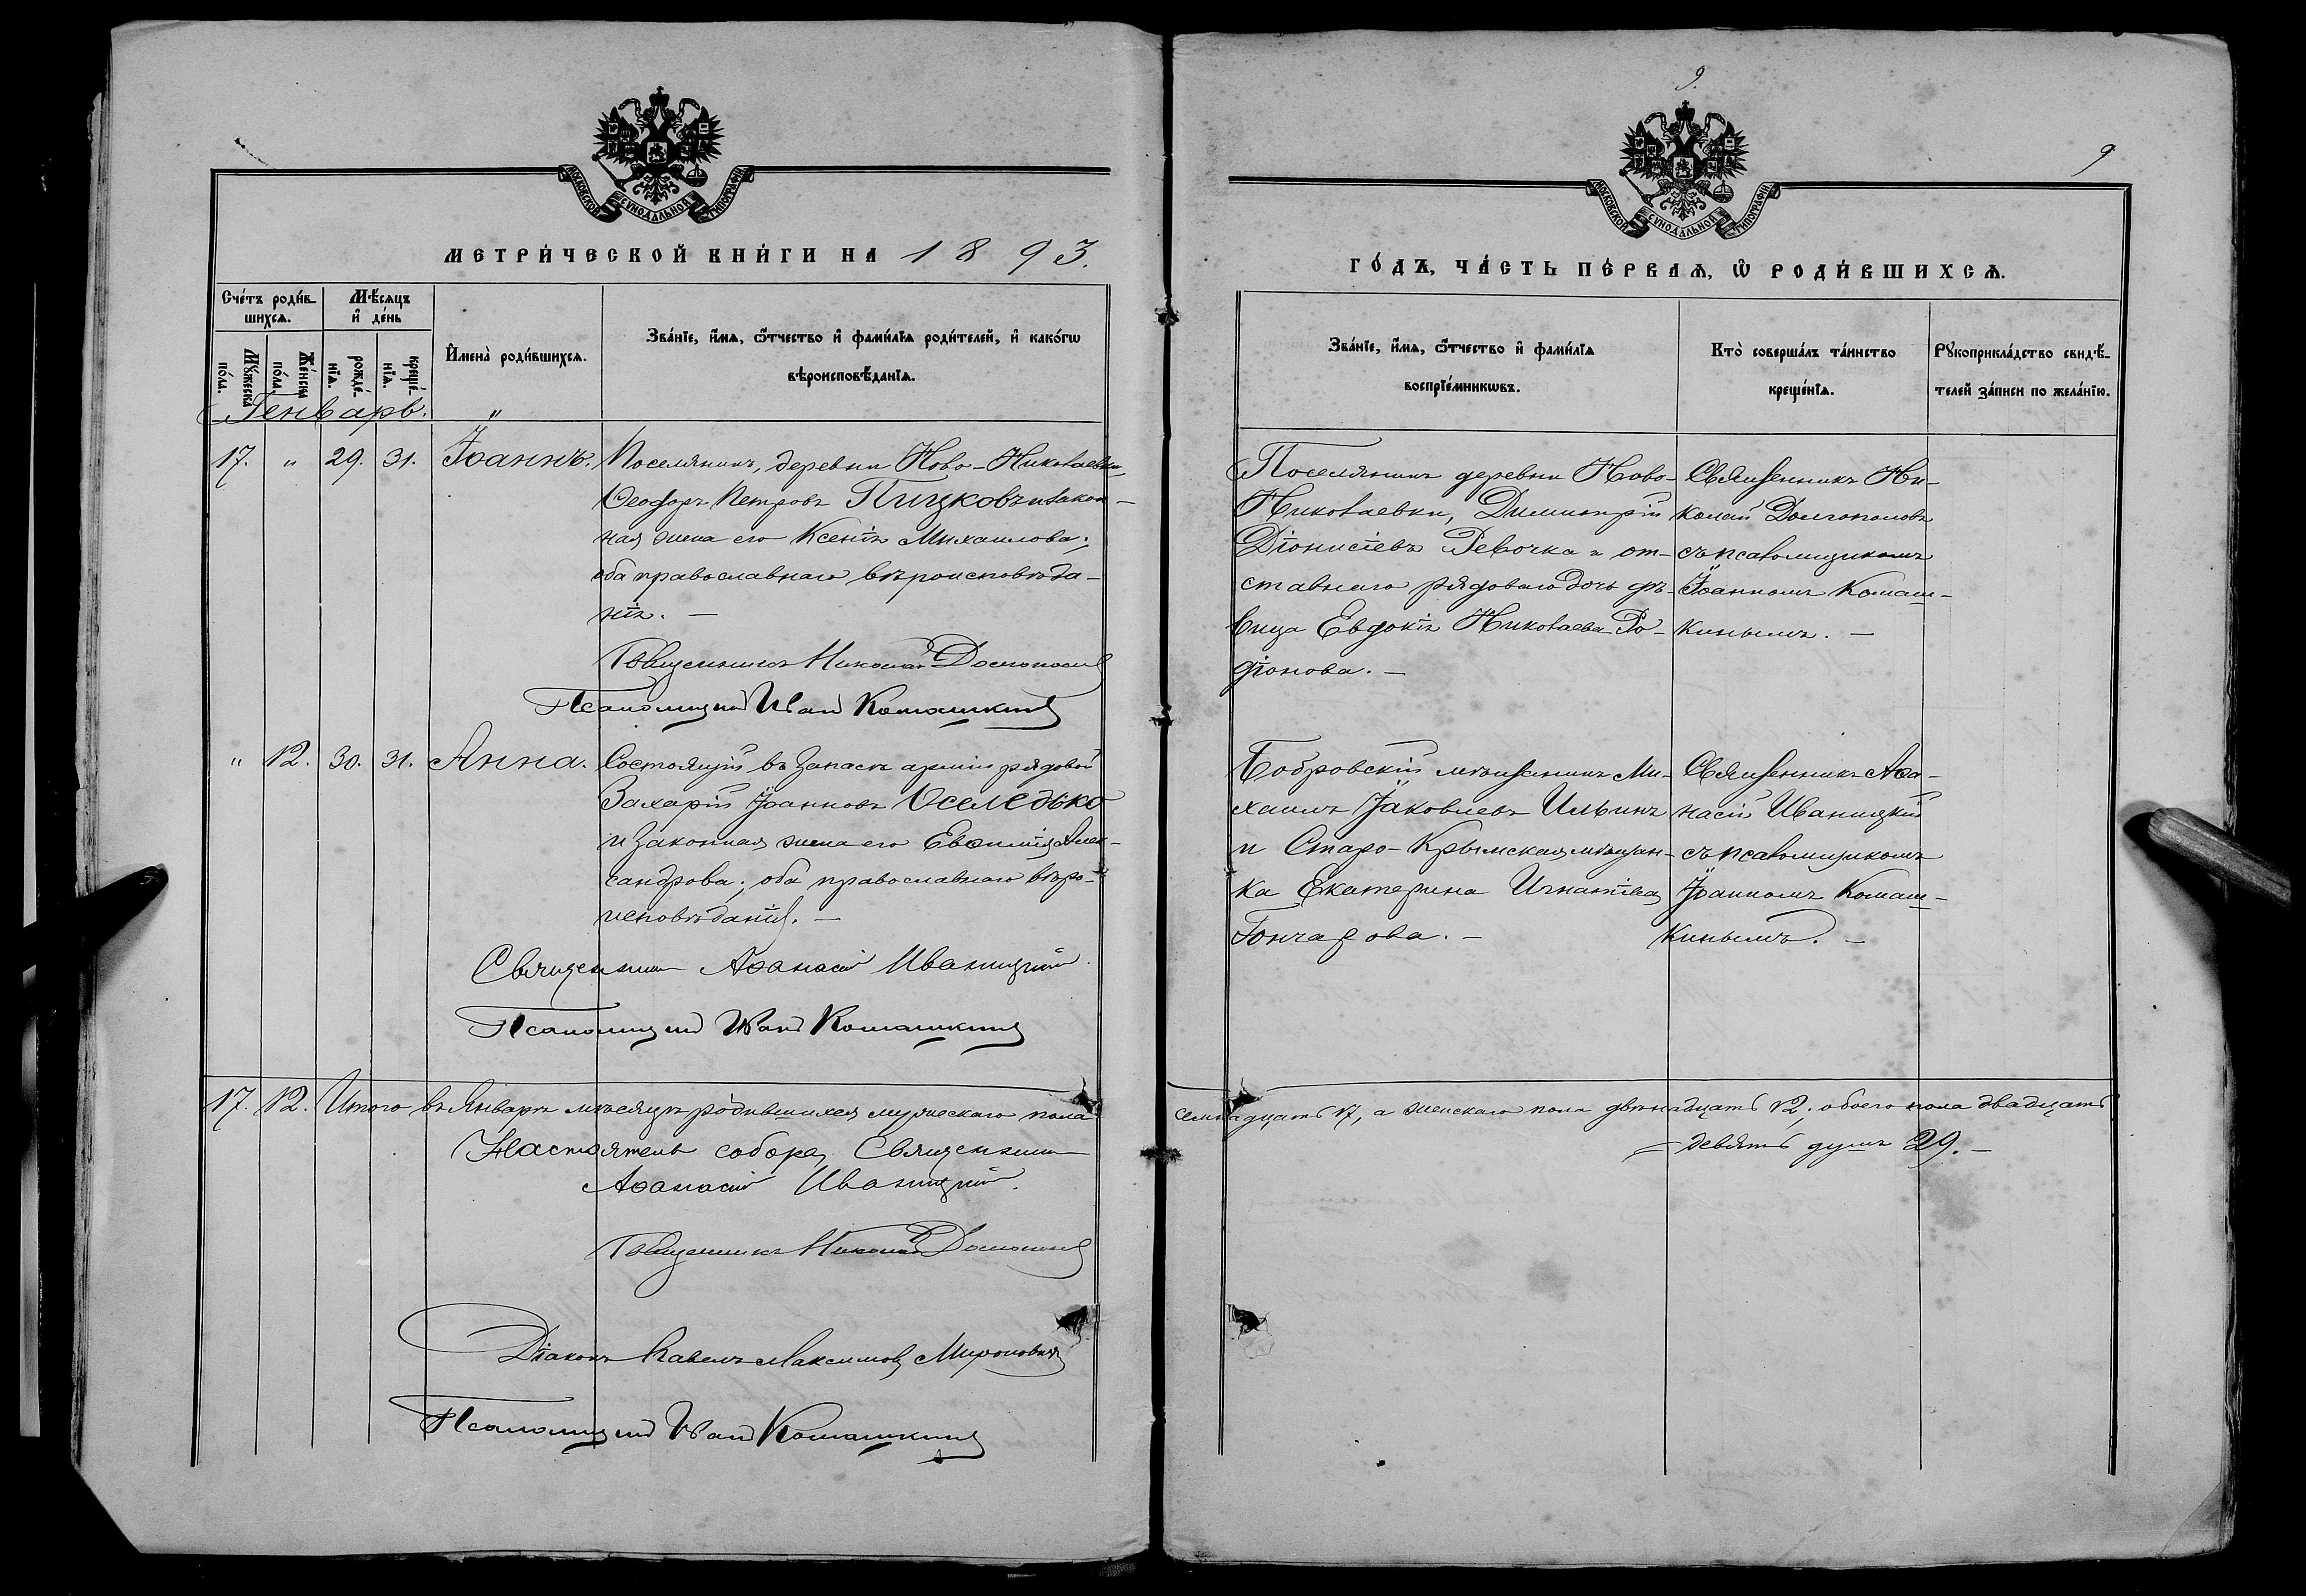 МОСКОВСКОЙ СѴНОДАЛЬНОЙ ТИПОГРАФІИ
МЕТРИ́ЧЕСКОЙ КНИ́ГИ НА 1893.
Сче́тъ роди́в-
шихсѧ.
Мѣ́сѧцъ
и҆ де́нь
И҆мена̀ роди́вшихсѧ.
Зва́нїе, и҆́мѧ, ѻ҆́тчество и҆ фами́лїѧ роди́телей, и҆ како́гѡ
вѣроисповѣ́данїѧ.
Мꙋ́жеска
по́ла.
Же́нска
по́ла.
рожде́-
нїѧ.
креще́-
нїѧ.
Генварь. "
17. " 29. 31. Іоаннъ. Поселянинъ, деревни Ново-Николаевки
Ѳеодоръ Петровъ Пицковъ и закон-
ная жена его Ксенія Михаилова;
оба православнаго вѣроисповѣда-
нія. —
Священникъ Николай Долгополовъ
Псаломщикъ Иванъ Комашкинъ
" 12. 30. 31. Анна. Состоящій въ запасѣ арміи рядовой
Захарій Іоанновъ Оселедько
и законная жена его Евѳимія Алек-
сандрова; оба православнаго вѣро-
исповѣданія. —
Священникъ Аѳанасій Иваницкій.
Псаломщикъ Иванъ Комашкинъ
17. 12. Итого въ Январѣ мѣсяцѣ родившихся мужескаго пола
Настоятель собора, Священникъ
Аѳанасій Иваницкій.
Священникъ Николай Долгополовъ
Діаконъ Павелъ Максимовъ Мироновичъ
Псаломщикъ Иванъ Комашкинъ
9.
9
МОСКОВСКОЙ СѴНОДАЛЬНОЙ ТИПОГРАФІИ
ГО́ДЪ, ЧА́СТЬ ПЕ́РВАѦ, Ѽ РОДИ́ВШИХСѦ.
Зва́нїе, и҆́мѧ, ѻ҆́тчество и҆ фами́лїѧ
воспрїе́мникѡвъ.
Кто̀ соверша́лъ та́инство
креще́нїѧ.
Рꙋкоприкла́дство свидѣ́-
телей за́писи по жела́нїю.
Поселянинъ деревни Ново-
Николаевки, Димитрій
Діонисіевъ Ревочка и от-
ставнаго рядоваго дочь дѣ-
вица Евдокія Николаева Ро-
діонова. —
Священникъ Ни-
колай Долгополовъ
съ псаломщикомъ
Іоанномъ Комаш-
кинымъ. —
Бобровскій мѣщанинъ Ми-
хаилъ Іаковлевъ Ильинъ
и Старо-Крымская мѣщан-
ка Екатерина Игнатіева
Гончарова. —
Священникъ Аѳа-
насій Иваницкій
съ псаломщикомъ
Іоанномъ Комаш-
кинымъ. —
семнадцать 17, а женскаго пола двѣнадцать 12; обоего пола двадцать
= девять душъ 29. —